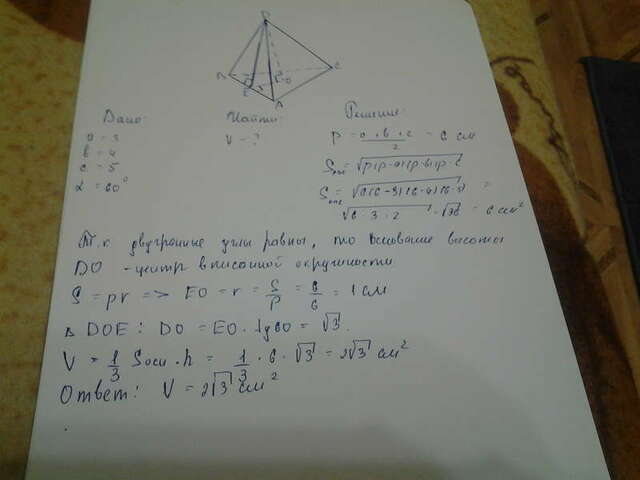 D
C
E
O
A
Дано: Найти: Решение:
a = 3 V - ? p = a+b+c / 2 = 6 см
b = 4
c = 5 Sосн = √p(p-a)(p-b)(p-c
α = 60° Sосн = √6(6-3)(6-4)(6-5) =
√6·3·2 = √36 = 6 см²
Т.к двугранные углы равны, то основание высоты
DO - центр вписанной окружности
S = pr => EO = r = S/p = 6/6 = 1 см
△ DOE: DO = EO · tg60 = √3.
V = 1/3 Sосн · h = 1/3 · 6 · √3 = 2√3 см²
Ответ: V = 2√3 см²